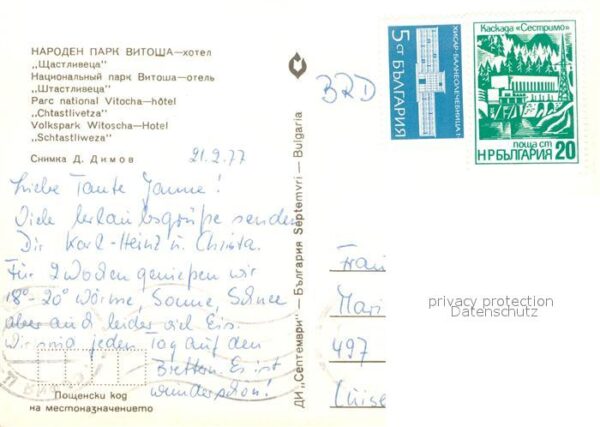 НАРОДЕН ПАРК ВИТОША—хотел
„Щастливеца"
Национальный парк Витоша—отель
„Штастливеца"
Parc national Vitocha—hôtel
„Chtastlivetza"
Volkspark Witoscha—Hotel
„Schtastliweza"
Снимка Д. Димов
21.2.77
Liebe Tante Janne!
Viele Urlaubsgrüße senden
Dir Karl-Heinz u. Christa.
Für 2 Wochen genießen wir
18°-20° Wärme, Sonne, Schnee
aber auch leider viel Eis.
Wir sind jeden Tag auf den
Brettern. Es ist
wunderschön!
Пощенски код
на местоназначението
ДИ „Септември" — България Septemvri — Bulgaria
BRD
5 СТ БЪЛГАРИЯ
ХИСАР-БАЛНЕОЛЕЧЕБНИЦА
Каскада «Сестримо»
поща ст
НР БЪЛГАРИЯ 20
Frau
Mari
497
privacy protection
Datenschutz